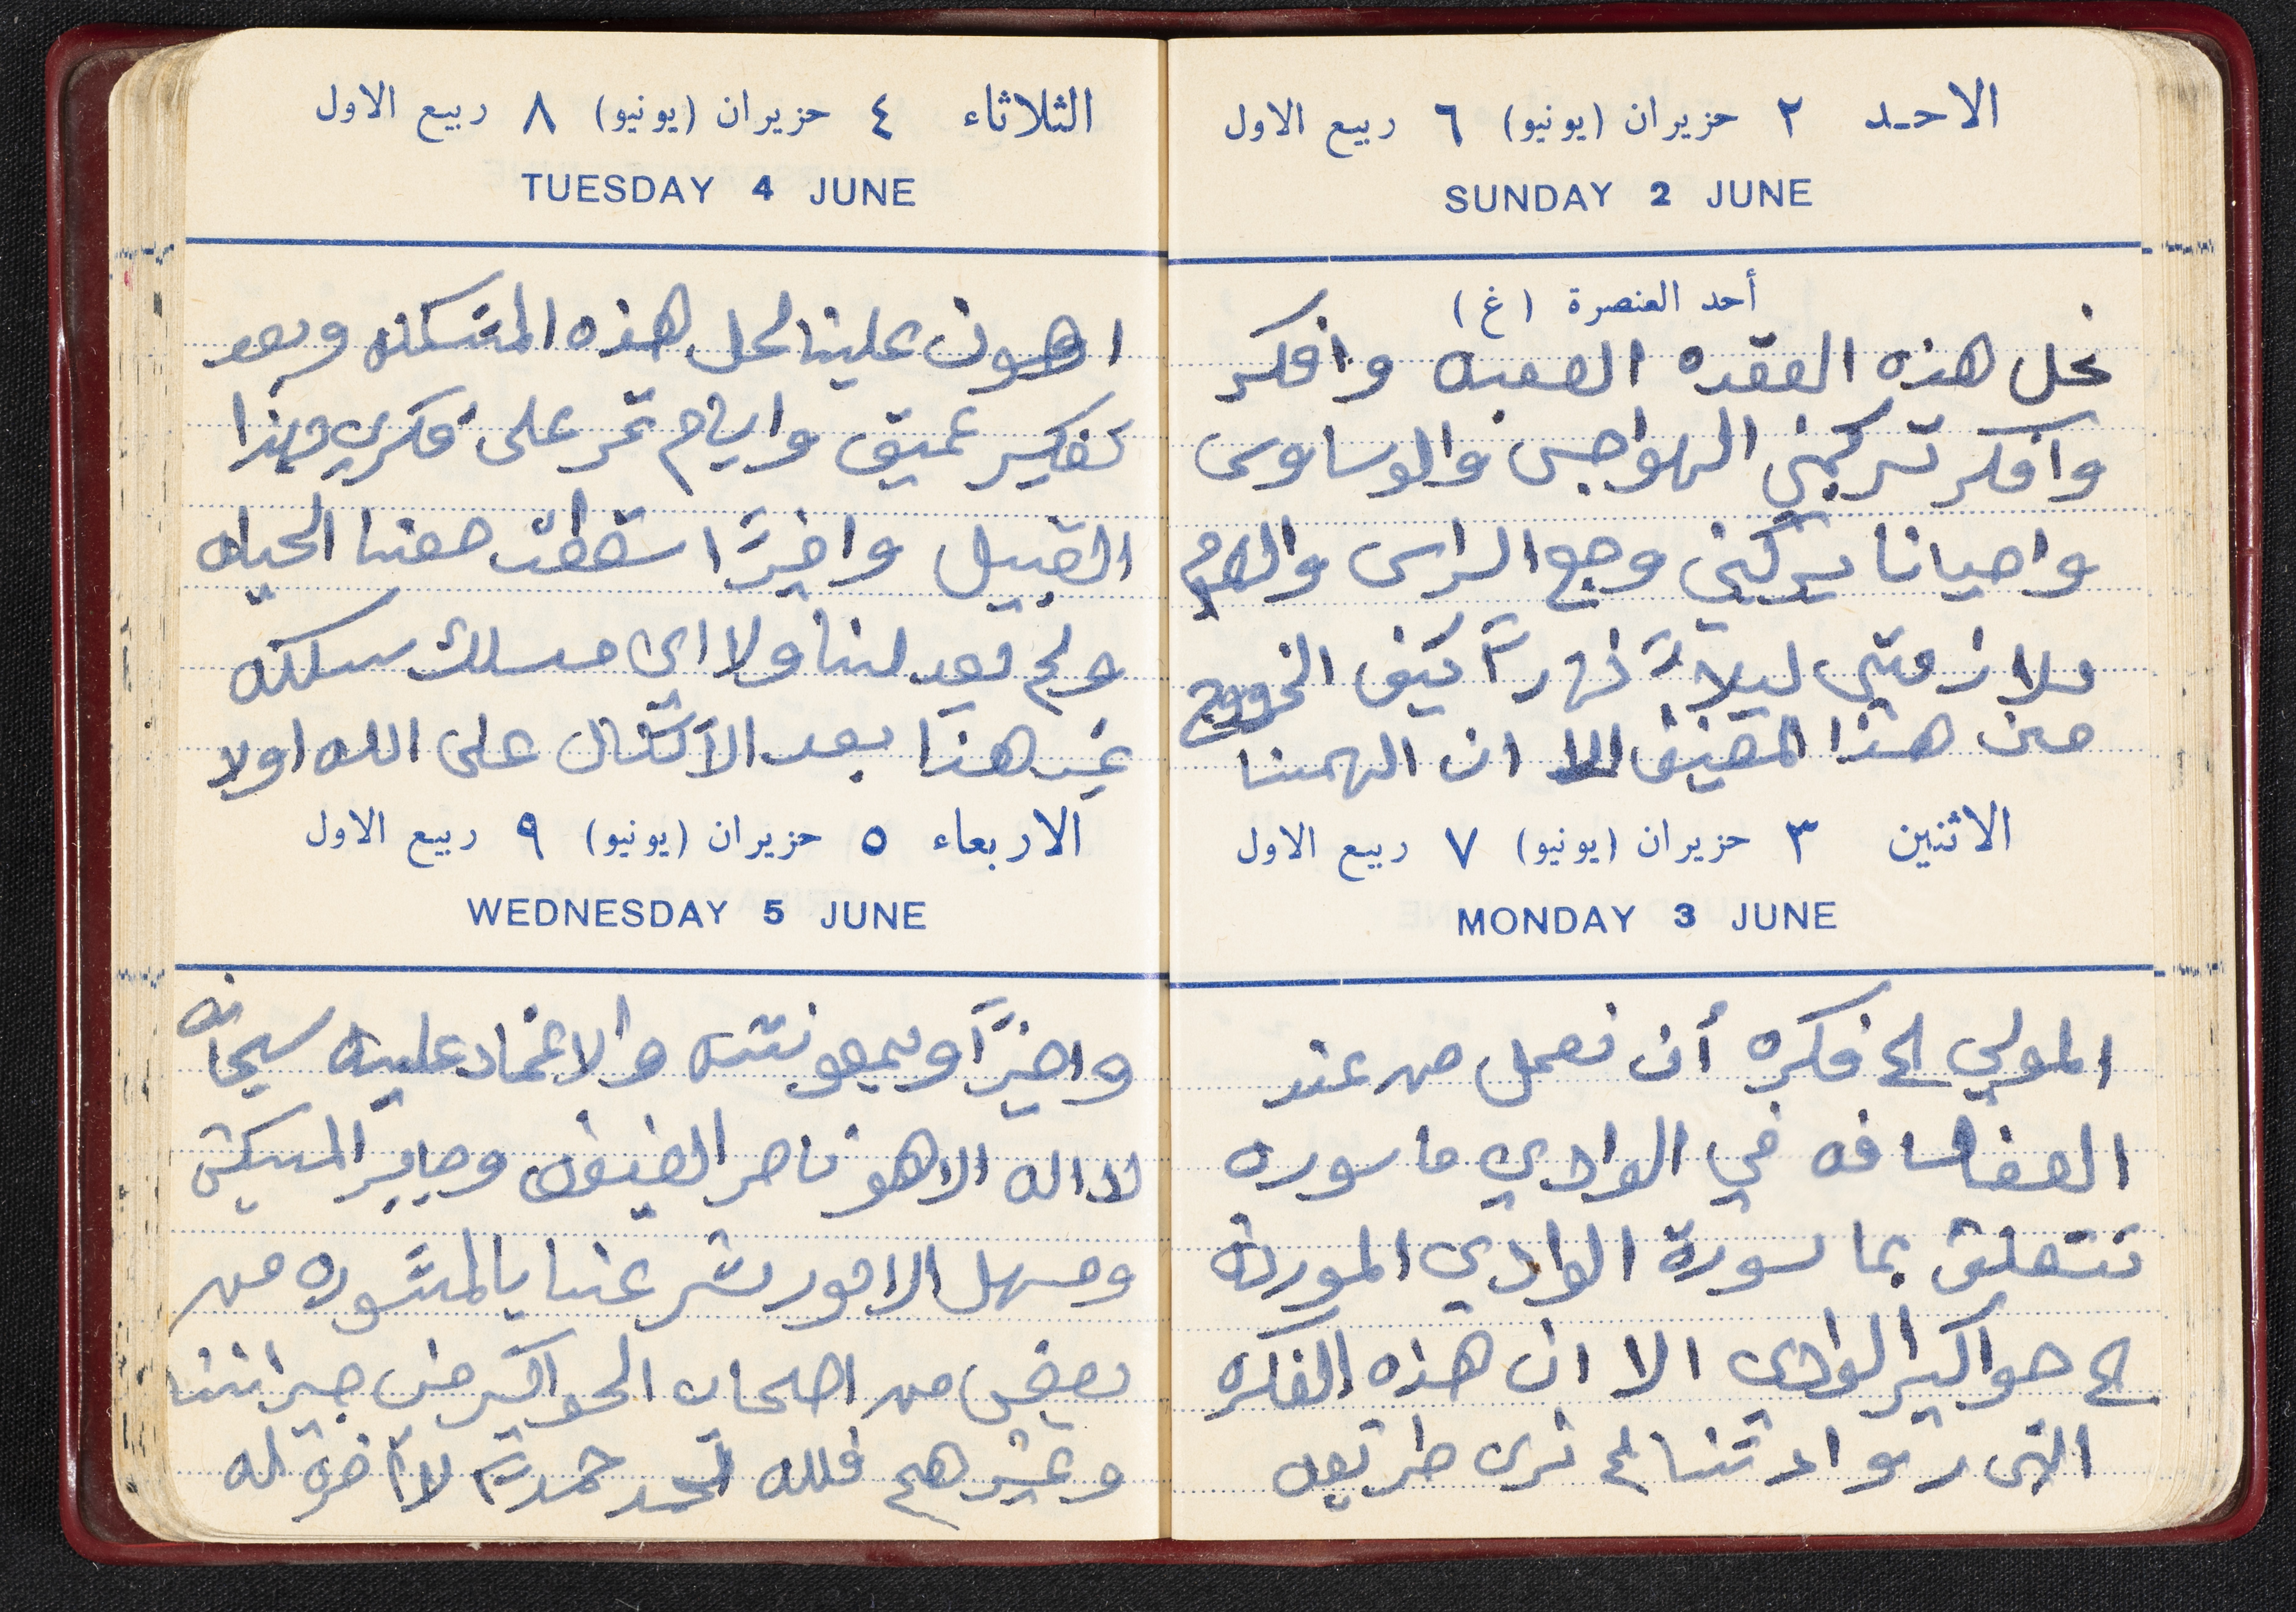 الاحد ٢ حزيران (يونيو) ٦ ربيع الاول
SUNDAY 2 JUNE
أحد العنصرة (غ)
نحل هذه العقده الصعبه وافكر
وافكر تركبني الهواجس والوساوس
واحيانا يركبني وجع الراس والام
ملازمتي ليلاً نهاراً كيف الخروج
من هذا المضيف الا ان الهمنا
الاثنين ٣ حزيران (يونيو) ٧ ربيع الاول
MONDAY 3 JUNE
المولي الى فكره أن نعمل من عند
الصفاصافه في الوادي ماسوره
تتعلق بماسورة الوادي الموردة
الى حواكير الوادي الا ان هذه الفكره
التي راودتنا لم نرى طريقه
الثلاثاء ٤ حزيران (يونيو) ٨ ربيع الاول
TUESDAY 4 JUNE
اهون علينا لحل هذه المشكله وبعد
تفكير عميق وايام تمر على فكري بهذا
القبيل واخيرًا سقطت معنا الحياه
ولم يعد لنا ولا اي مسلك نسلكه
غير هذا بعد الاتكال على الله اولا
الاربعاء ٥ حزيران (يونيو) ٩ ربيع الاول
WEDNESDAY 5 JUNE
واخيرًا وبمعونته والاعتماد عليه سبحانه
لا اله الا هو ناصر الضعيف وجابر المسكين
ومسهل الامور شرعنا بالمشوره من
بعض من اصحاب الحواكير من جيراننا
وغيرهم فلله الحمد حمداً لا آخرة له